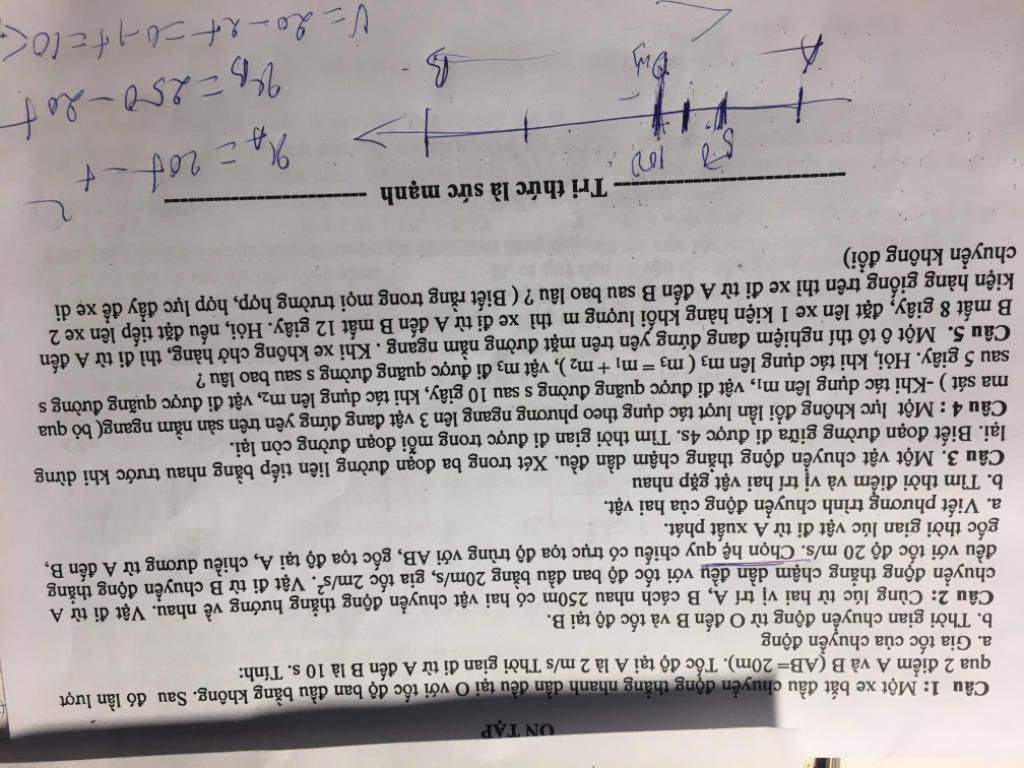 ÔN TẬP
Câu 1: Một xe bắt đầu chuyển động thẳng nhanh dần đều tại O với tốc độ ban đầu bằng không. Sau đó lần lượt
qua 2 điểm A và B (AB= 20m). Tốc độ tại A là 2 m/s Thời gian đi từ A đến B là 10 s. Tính:
a. Gia tốc của chuyển động
b. Thời gian chuyển động từ O đến B và tốc độ tại B.
Câu 2: Cùng lúc từ hai vị trí A, B cách nhau 250m có hai vật chuyển động thẳng hướng về nhau. Vật đi từ A
chuyển động thẳng chậm dần đều với tốc độ ban đầu bằng 20m/s, gia tốc 2m/s². Vật đi từ B chuyển động thẳng
đều với tốc độ 20 m/s. Chọn hệ quy chiếu có trục tọa độ trùng với AB, gốc tọa độ tại A, chiều dương từ A đến B,
gốc thời gian lúc vật đi từ A xuất phát.
a. Viết phương trình chuyển động của hai vật.
b. Tìm thời điểm và vị trí hai vật gặp nhau
Câu 3. Một vật chuyển động thẳng chậm dần đều. Xét trong ba đoạn đường liên tiếp bằng nhau trước khi dừng
lại. Biết đoạn đường giữa đi được 4s. Tìm thời gian đi được trong mỗi đoạn đường còn lại.
Câu 4 : Một lực không đổi lần lượt tác dụng theo phương ngang lên 3 vật đang đứng yên trên sàn nằm ngang( bỏ qua
ma sát ) -Khi tác dụng lên m₁, vật đi được quãng đường s sau 10 giây, khi tác dụng lên m₂, vật đi được quãng đường s
sau 5 giây. Hỏi, khi tác dụng lên m₃ ( m₃ = m₁ + m₂ ), vật m₃ đi được quãng đường s sau bao lâu ?
Câu 5. Một ô tô thí nghiệm đang đứng yên trên mặt đường nằm ngang . Khi xe không chở hàng, thì đi từ A đến
B mất 8 giây, đặt lên xe 1 kiện hàng khối lượng m thì xe đi từ A đến B mất 12 giây. Hỏi, nếu đặt tiếp lên xe 2
kiện hàng giống trên thì xe đi từ A đến B sau bao lâu ? ( Biết rằng trong mọi trường hợp, hợp lực đẩy để xe di
chuyển không đổi)
Tri thức là sức mạnh
100
A
B
x_A = 20t - t²
x_B = 250 - 20t
V = 20 - 2t = 0 → t = 10